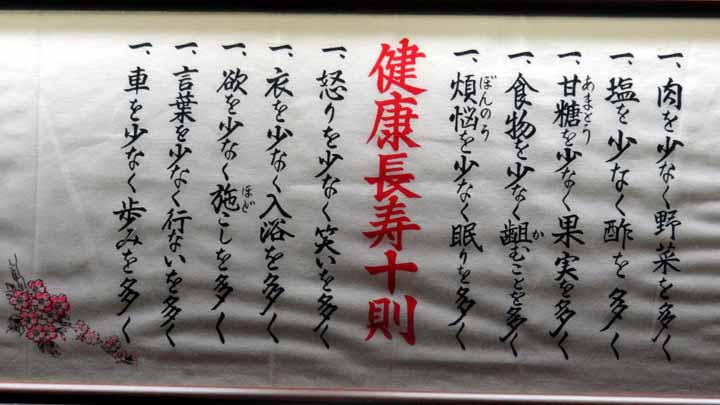 一、肉を少なく野菜を多く
一、塩を少なく酢を多く
一、甘糖を少なく果実を多く
あまどう
一、食物を少なく齟むことを多く
か
一、煩悩を少なく眠りを多く
ぼんのう
健康長寿十則
一、怒りを少なく笑いを多く
一、衣を少なく入浴を多く
一、欲を少なく施こしを多く
ほど
一、言葉を少なく行ないを多く
一、車を少なく歩みを多く